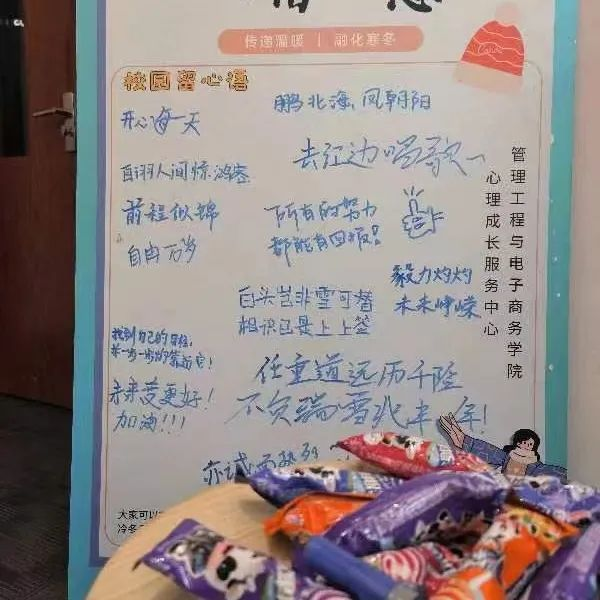 传递温暖 | 融化寒冬
校园留心语
开心每一天
鹏北海,凤朝阳
去江边唱歌~
自诩人间惊鸿客
前程似锦
所有的努力
都能有回报!
自由万岁
毅力灼灼
未来峥嵘
白头岂非雪可替
相识已是上上签
找到自己的目标,
未来度更好!
加油!!!
任重道远历千险
不负瑞雪兆丰年!
管理工程与电子商务学院
心理成长服务中心
大家可以
冷冬